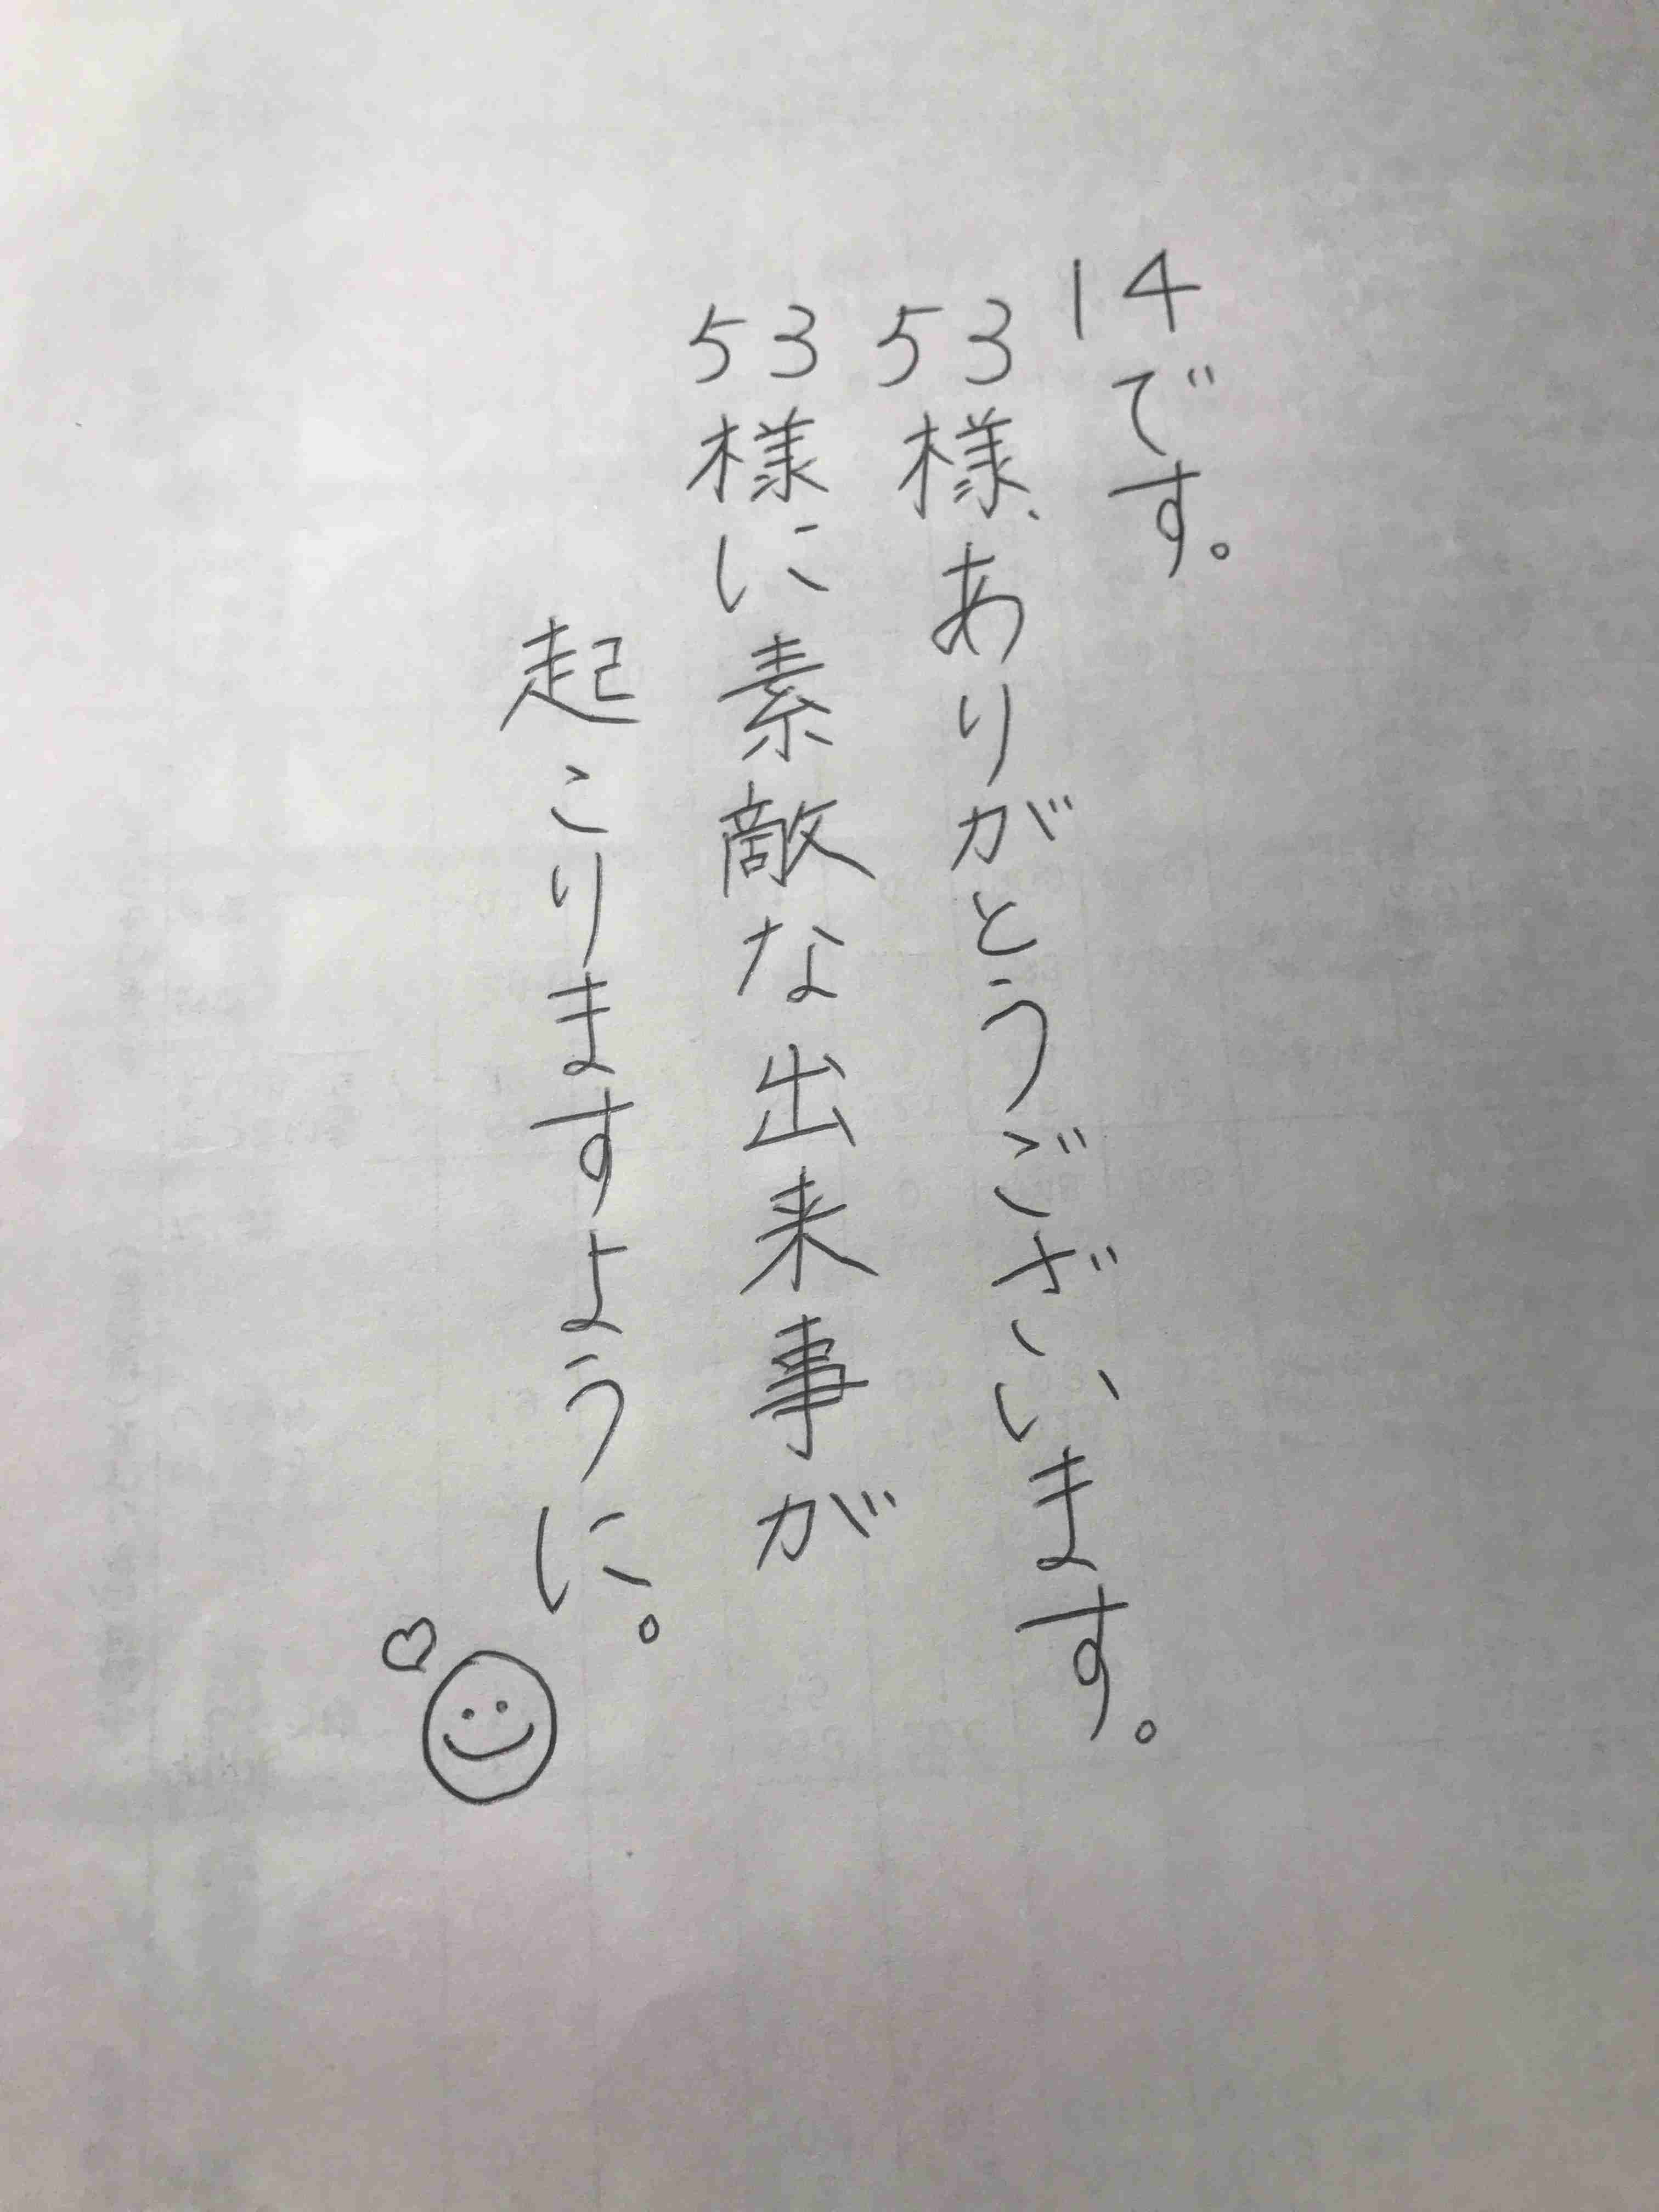 14です。
53様、ありがとうございます。
53様に素敵な出来事が
起こりますように。